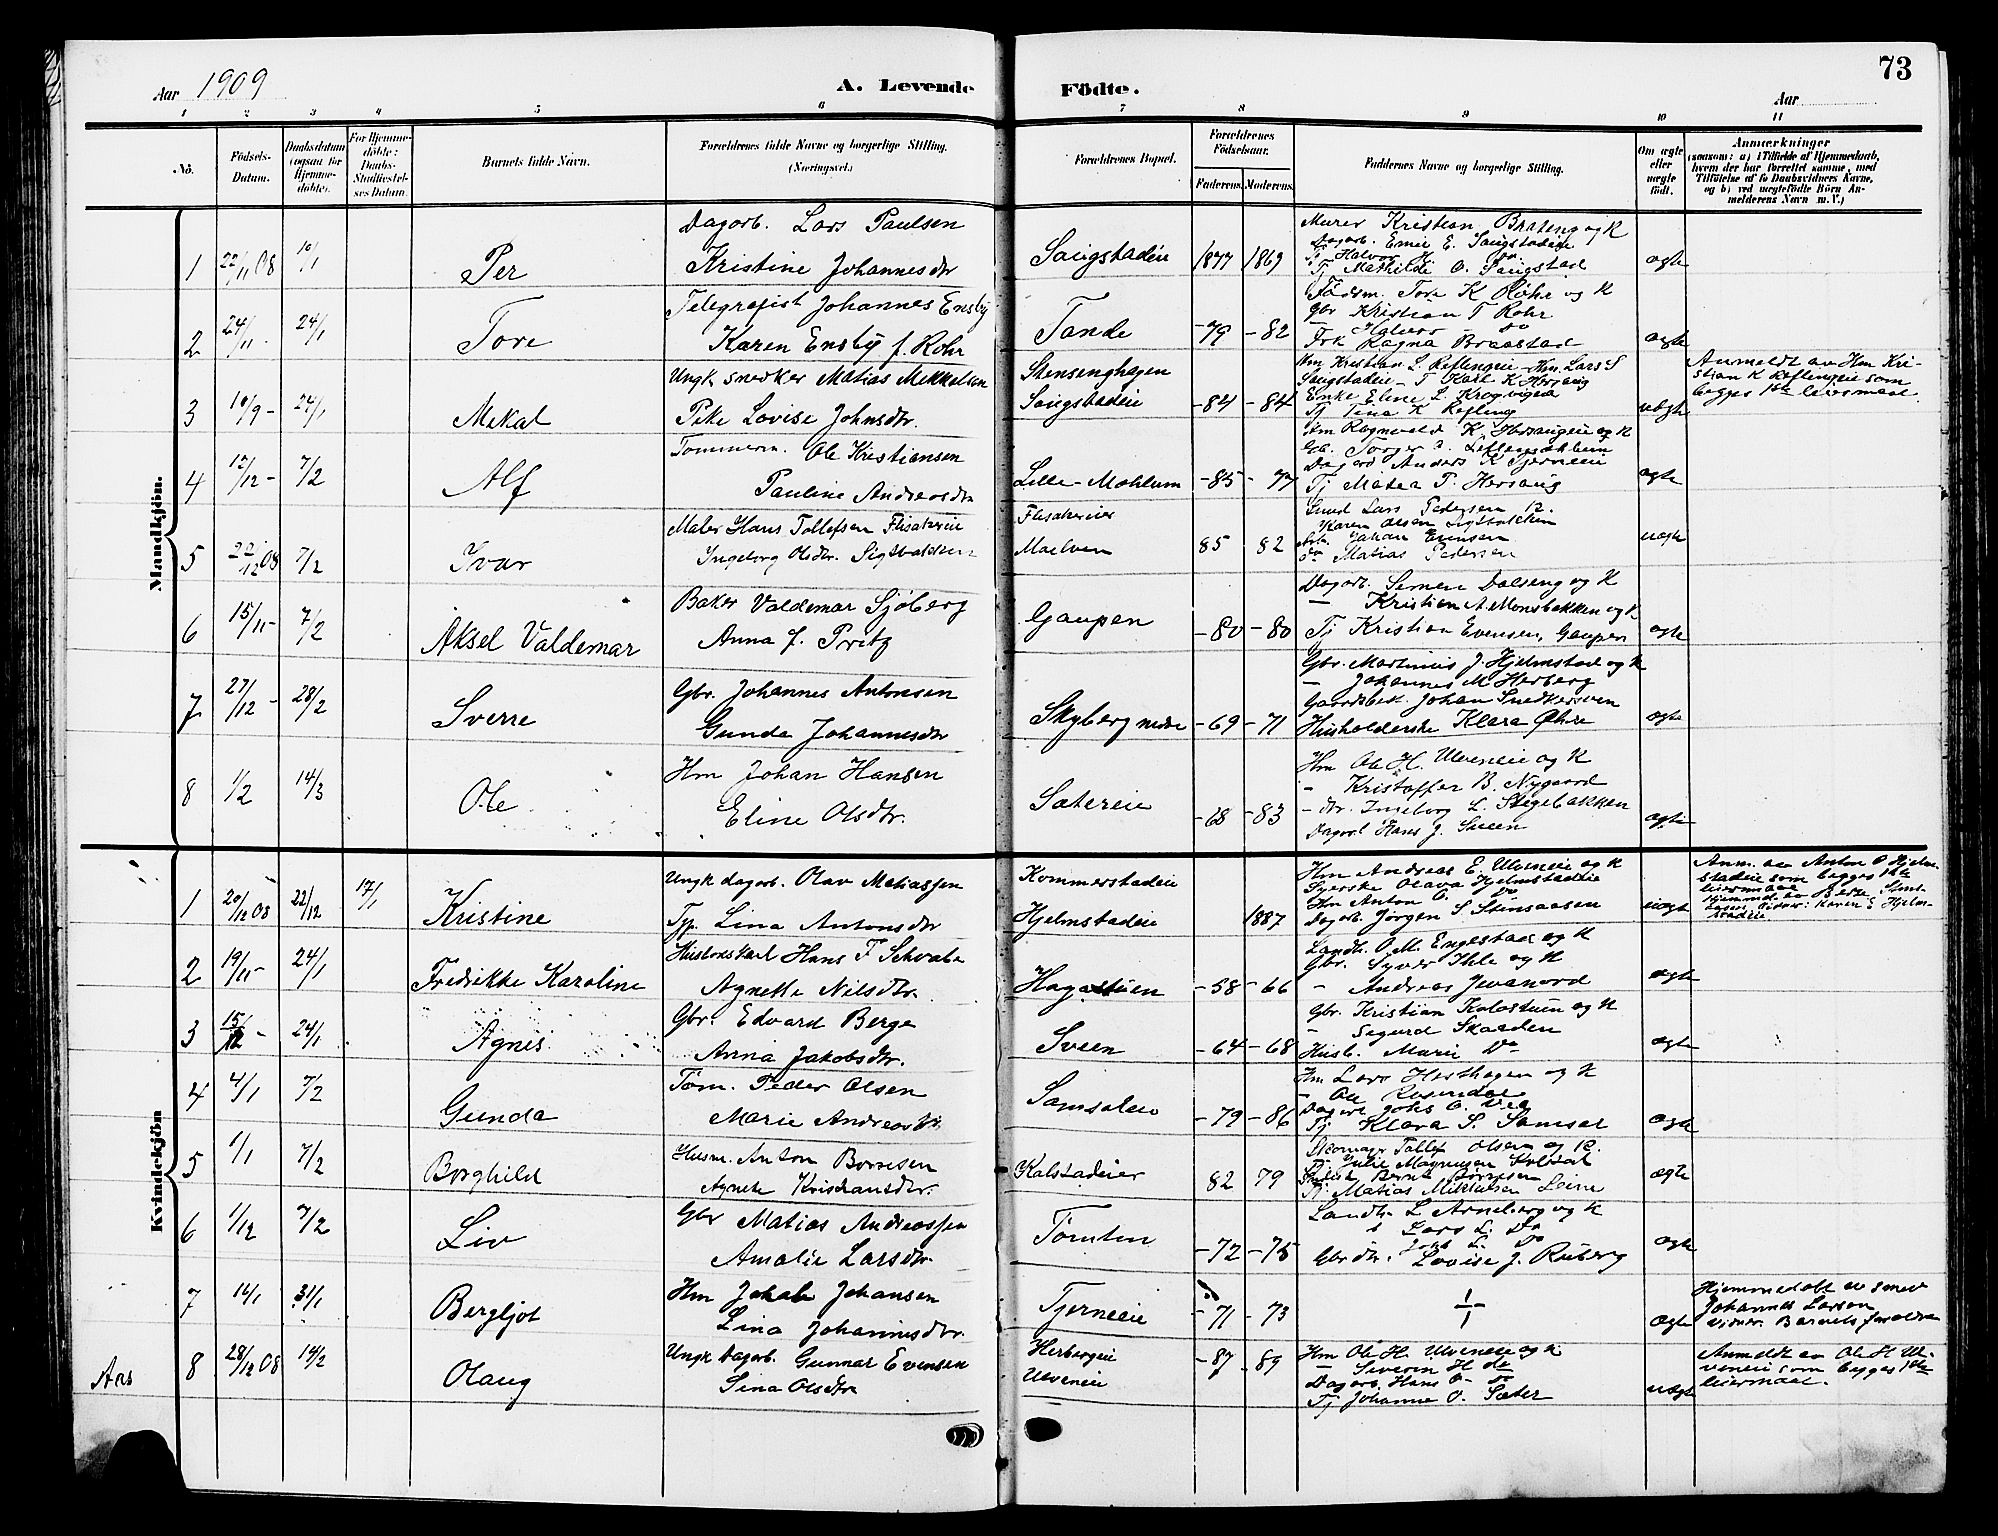 73
Aar 1909
A. Levende Fødte.
Aar
1 2 3 4 5 6 7 8 9 10 11
No.
Fødsels-Datum.
Daabsdatum (ogsaa for Hjemmedøbte).
For Hjemmedøbte: Daabs-Stadfæstelses Datum.
Barnets fulde Navn.
Forældrenes fulde Navne og borgerlige Stilling. (Næringsvei.)
Forældrenes Bopæl.
Forældrenes Fødselsaar.
Faderens. Moderens.
Faddernes Navne og borgerlige Stilling.
Om ægte eller uægte født.
Anmærkninger
(saasom: a) i Tilfælde af Hjemmedaab, hvem der har forrettet samme, med Tilføielse af to Daabsvidners Navne, og b) ved uægtefødte Børn Anmelderens Navn m. V.)
Mandkjøn.
1 22/11 08 10/1 Per
Dagarb. Lars Paulsen
Kristine Johannesdtr
Saugstadeie 1877 1869
Murer Kristian Brateng og K
Dagarb. Emil E. Saugstadeie
Tj Halvor H. do
Tj Mathilde O. Saugstad
ægte
2 24/11 - 24/1 Tore
Telegrafist Johannes Ensby
Karen Ensby f. Rohr
Tande -79 -82
Fødsm. Tore K Røhr og K
Gbr Kristian T Rohr
- Halvor do
Frk Ragna Braastad
ægte
3 10/9 - 24/1 Mekal
Ungk snedker Matias Mikkelsen
Pike Lovise Johnsdtr.
Stensenghagen
Saugstadeie -84 -84
Hm Kristian L Reflengeie - Hm Lars S
Saugstadeie - T Karl K Hersaug
Enke Eline L. Krogvigeie
Tj Tina K Refling
uægte
Anmeldt av Hm Kristian K Reflengeie som begges 1ste leiermaal.
4 12/12 - 7/2 Alf
Tømmerm. Ole Kristiansen
Pauline Andreasdtr
Lille-Mæhlum -85 -77
Hm Ragnvald K Hersaugeie og K
Dagarb Anders K Tjerneie
Tj Matea T. Hersaug
ægte
5 22/12 08 7/2 Ivar
Maler Hans Tollefsen Flisakereie
Ingeborg Olsdtr. Sigtbakken
Flisakereier
Moelven 85 82
Smed Lars Pedersen K.
Karen Olsen Sigtbakken
Arb. Johan Evensen
do Matias Pedersen
uægte
6 15/11 - 7/2 Aksel Valdemar
Baker Valdemar Sjøberg
Anna f. Pritz
Gaupen -80 -80
Dagarb. Simen Dalseng og K
- Kristian A. Monsbakken og K
Tj Kristian Evensen, Gaupen
ægte
7 27/12 - 28/2 Sverre
Gbr. Johannes Antonsen
Gunda Johannesdtr
Skyberg nedre -69 -71
Gbr. Martinius J. Hjelmstad og K
- Johannes M Herberg
Gaardsbek. Johan Snedkersveen
Husholderske Klara Øhre
ægte
8 1/2 14/3 Ole
Hm Johan Hansen
Eline Olsdtr.
Sætereie -68 -83
Hm Ole H. Ulveneie og K
- Kristoffer B. Nygaard
- dtr. Ingeborg L. Stigebakken
Dagarb Hans J. Sveen
ægte
Kvindekjøn
1 20/12 08 22/12 17/1 Kristine
Ungk dagarb. Olav Matiassen
Tjp. Lina Antonsdtr
Kommerstadeie
Hjelmstadeie 1887
Hm Andreas E. Ulveneie og K
Syerske Olava Hjelmstadeie
Hm Anton O. Do
Dagarb Jørgen S Stensaasen
uægte
Anm. av Anton O Hjelmstadeie som begges 1ste leiermaal
2 19/11 - 24/1 Fredrikke Karoline
Hans F Schwabe
Agnethe Nilsdtr.
Hagastuen -58 -66
Landh. O M. Engestad og K
Gbr. Syver Ihle og K
- Andreas Jevanord
ægte
3 15/12 - 24/1 Agnes
Gbr. Edvard Berge
Anna Jakobsdtr.
Sveen -64 -68
Gbr Kristian Kolostuen og K
- Sigurd Skarden
Husb. Marie Do
ægte
4 4/1 7/2 Gunda
Tøm. Peder Olsen
Marie Andreasdtr.
Samsaleie -79 -86
Hm Lars Hersthagen og K
- Ole Rosendal
Dagarb Johs O. Veg
Tj Klara S. Samsal
ægte
5 1/1 7/2 Borghild
Husm. Anton Børresen
Agnete Kristiansdtr.
Kalstadeier 82 79
Skomager Tollef Olsen og K.
Tj Julie Magnusen Kolstad
Bernt Børresen
Tj. Matias Mikkelsen Leine
ægte
6 1/12 7/2 Liv
Gbr Matias Andreassen
Amalie Larsdtr.
Tomten -72 -75
Landh. L Arneberg og K
Lars L. Do
Gbr dtr. Lovise J. Ruberg
ægte
7 16/1 31/1 Bergljot
Hm Jakob Johansen
Lina Johannesdtr.
Tjerneie -71 -73
ægte
Hjemmedøbt av smed Johannes Larsen
Vidner: Barnets foreldre
8 28/12 08 14/2 Olaug
Ungk Dagarb. Gunnar Evensen
Sina Olsdtr
Herbergeie
Ulveneie -87 -89
Hm Ole H. Ulveneie og K
- Severin H do
Dagarb Hans O - do
Tj Johanne O. Sæter
uægte
Anmeldt av Ole H Ulveneie som begges 1ste leiermaal.